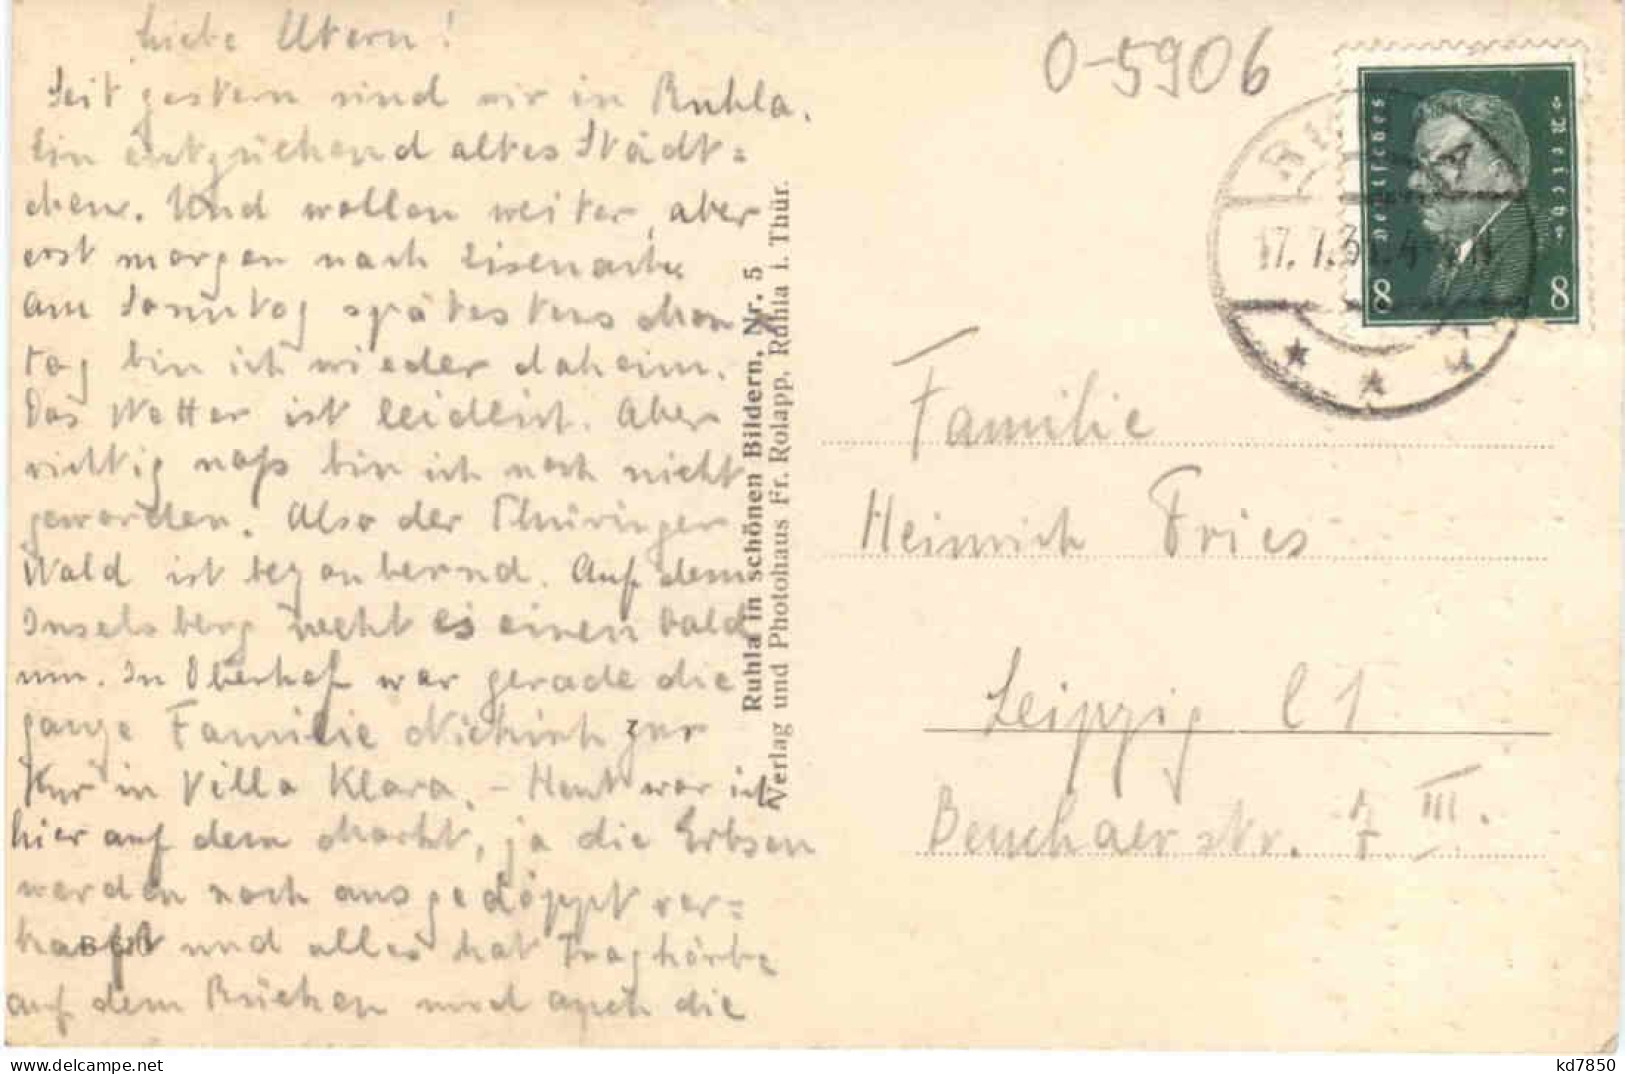 Liebe Eltern!
Seit gestern sind wir in Ruhla.
Ein entzückend altes Städt=
chen. Und wollen weiter, aber
erst morgen nach Eisenach
Am Sonntag spätestens Mon
tag bin ich wieder daheim.
Das Wetter ist leidlich. Aber
richtig naß bin ich noch nicht
geworden. Also der Thüringer
Wald ist bezaubernd. Auf dem
Inselsberg weht es einen bald
um. In Oberhof war gerade die
ganze Familie zur
Kur in Villa Klara. - Heut war ich
hier auf dem Markt, ja die Erbsen
werden noch ausgedöppt ver=
kauft und alles hat Tragkörbe
auf dem Rücken und auch die
B 620
Ruhla in schönen Bildern, Nr. 5
Verlag und Photohaus Fr. Rolapp, Ruhla i. Thür.
0-5906
Deutsches Reich
8 8
17.7.31.
Familie
Heinrich Fries
Leipzig C 1
Beuchaer str. 7 III.
delcampe.net
kd7850